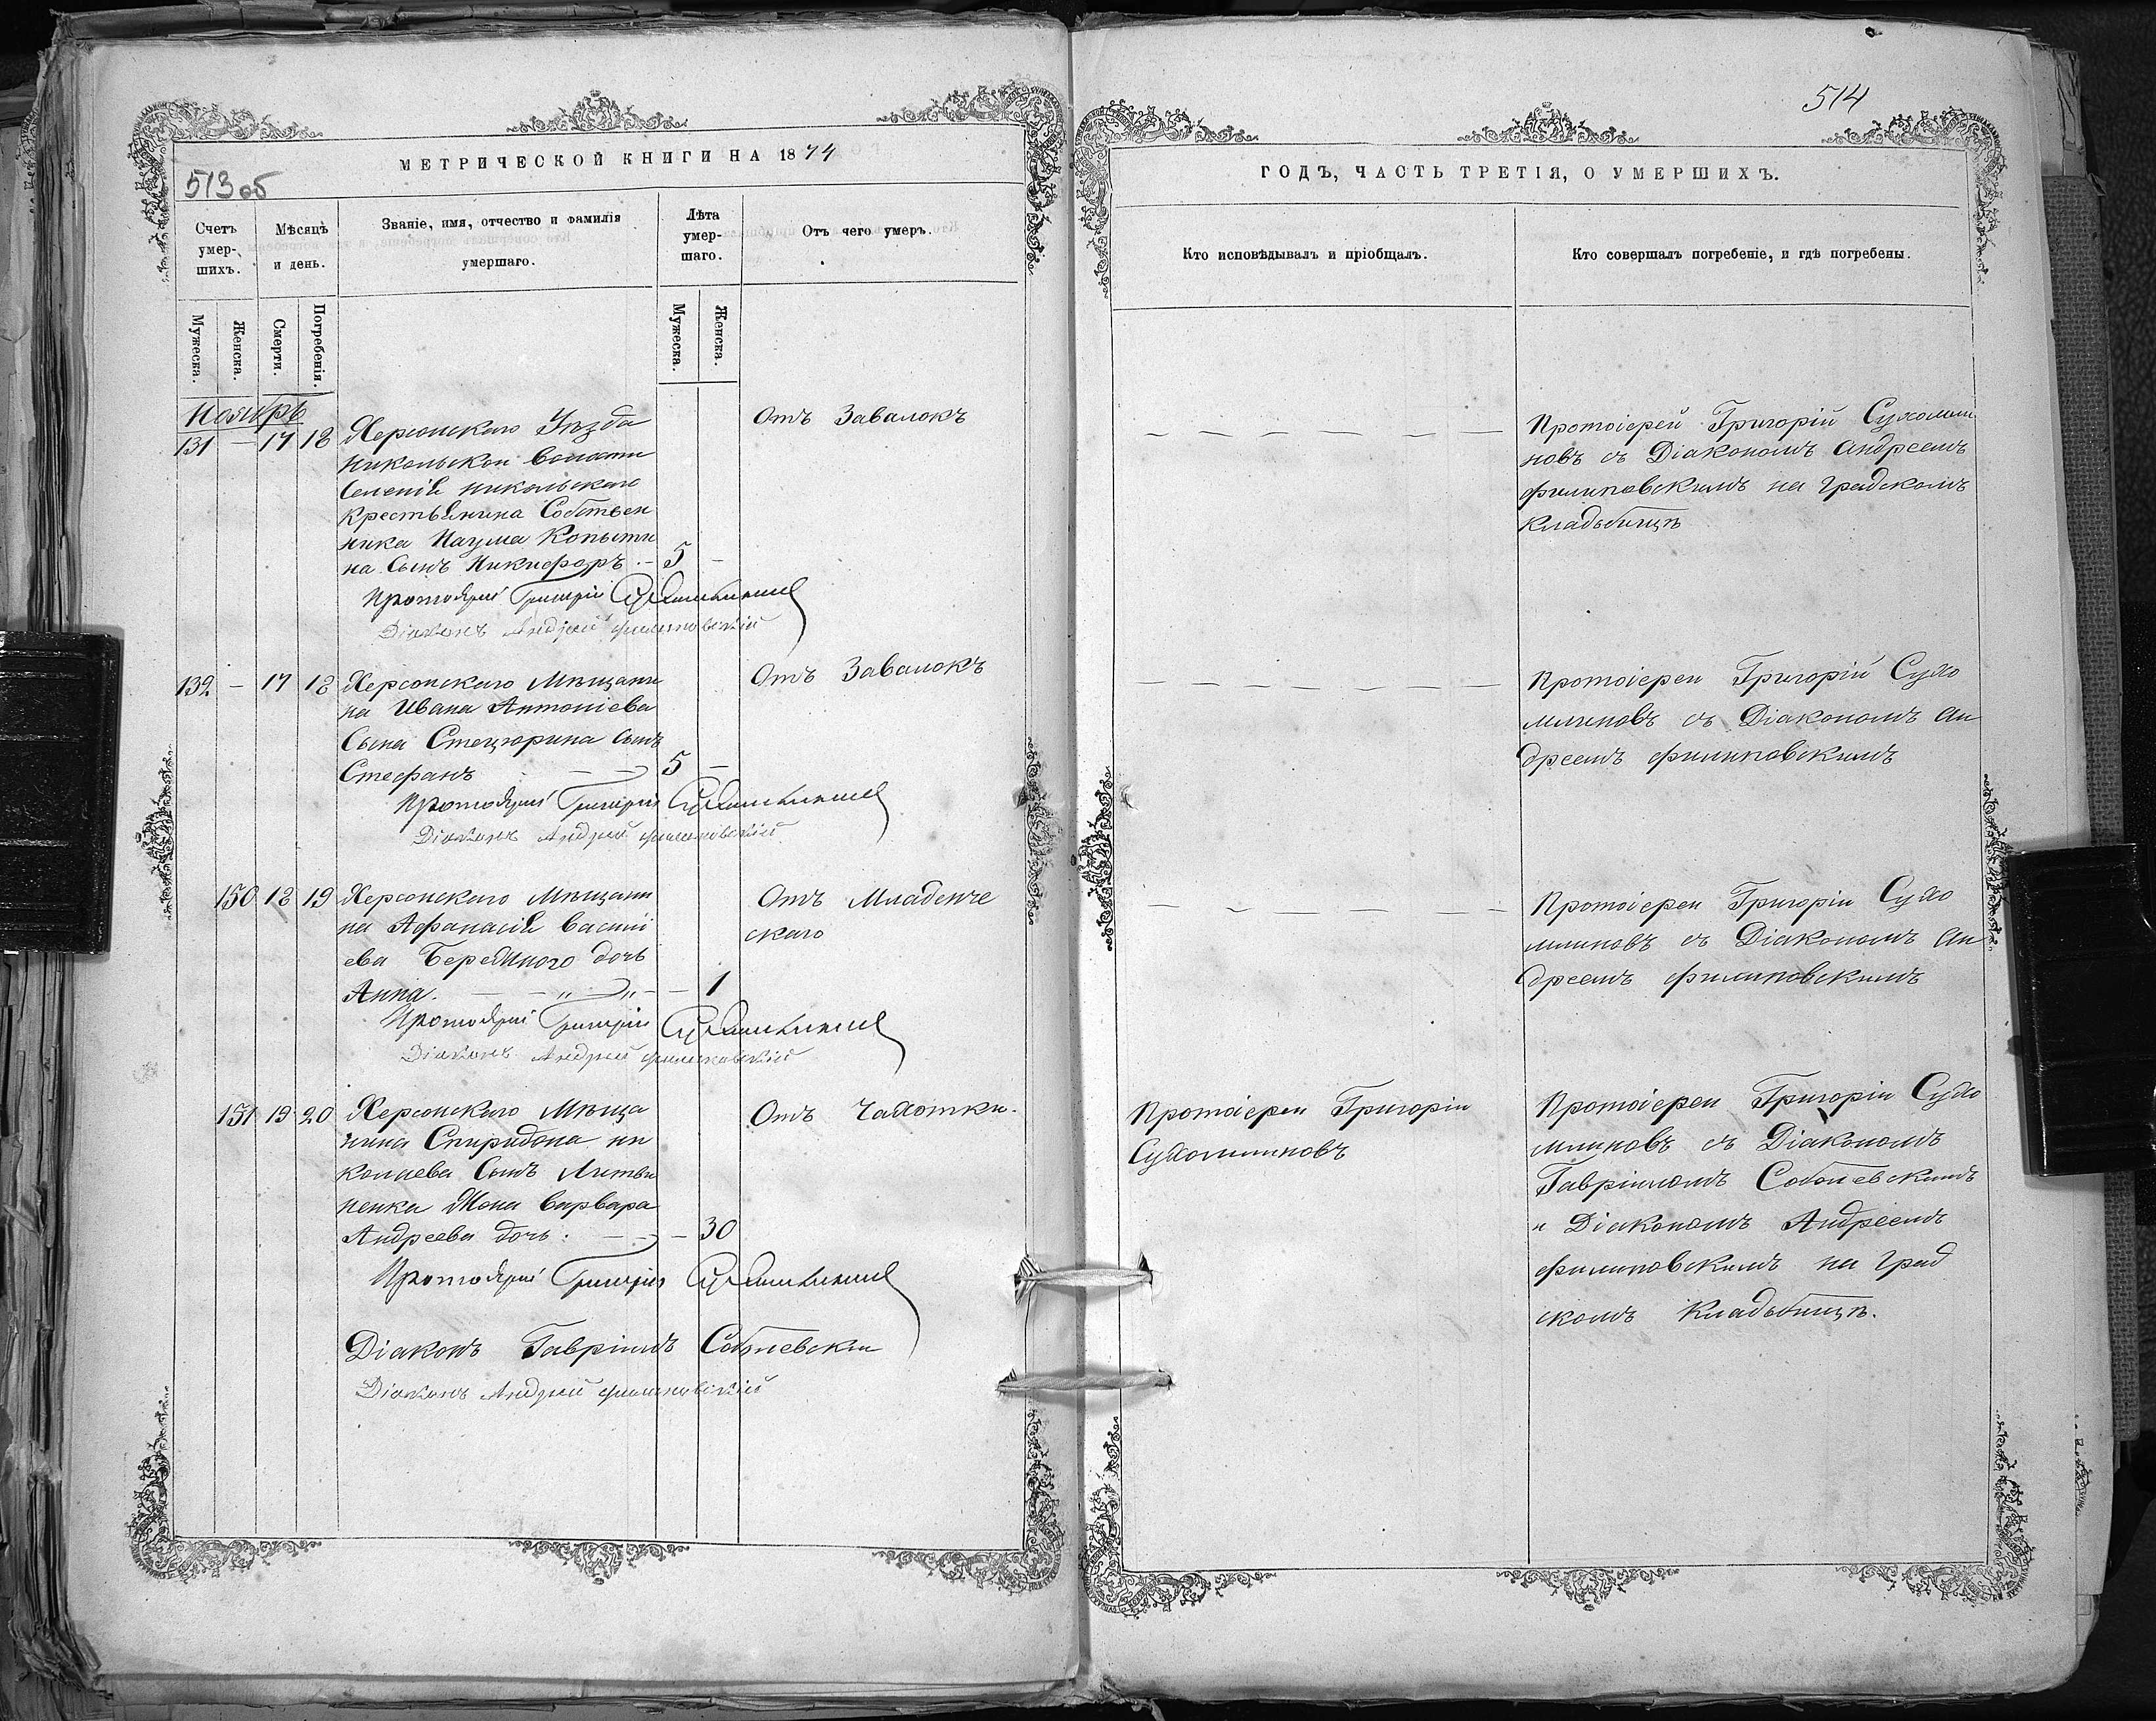 МЕТРИЧЕСКОЙ КНИГИ НА 1874
513об
Счетъ умер-шихъ.
Мѣсяцъ и день.
Званіе, имя, отчество и фамилія умершаго.
Лѣта умер-шаго.
Отъ чего умеръ.
Мужеска.
Женска.
Смерти.
Погребенія.
Мужеска.
Женска.
Ноябрь
131 — 17 18 Херсонскаго Уѣзда
Никольской Волости
Селенія Никольскаго
Крестьянина Собствен
ника Наума Копыти
на Сынъ Никифоръ. — 5 —
Отъ Завалокъ
Протоіерей Григорій Сухомлиновъ
Діаконъ Андрей Филиповскій
132 — 17 18 Херсонскаго Мѣщани
на Ивана Антоніева
Сына Стецюрина Сынъ
Стефанъ — — 5 —
Отъ Завалокъ
Протоіерей Григорій Сухомлиновъ
Діаконъ Андрей Филиповскій
150 18 19 Херсонскаго Мѣщани
на Афанасія Васили
ева Бережного дочь
Анна. — — „ — „ — — 1
Отъ Младенче
скаго
Протоіерей Григорій Сухомлиновъ
Діаконъ Андрей Филиповскій
151 19 20 Херсонскаго Мѣща
нина Спиридона Ни
колаева Сынъ Литви
ненка Жена Варвара
Андреева дочь. — — — 30
Отъ Чахотки.
Протоіерей Григорій Сухомлиновъ
Діаконъ Гавріилъ Соболевскій
Діаконъ Андрей Филиповскій
514
ГОДЪ, ЧАСТЬ ТРЕТІЯ, О УМЕРШИХЪ.
Кто исповѣдывалъ и пріобщалъ.
Кто совершалъ погребеніе, и гдѣ погребены.
— — — — — — —
Протоіерей Григорій Сухомли
новъ съ Діакономъ Андреемъ
Филиповскимъ на Градскомъ
Кладбищѣ
— — — — — — —
Протоіерей Григорій Сухо
млиновъ съ Діакономъ Ан
дреемъ Филиповскимъ
— — — — — — —
Протоіерей Григорій Сухо
млиновъ съ Діакономъ Ан
дреемъ Филиповскимъ
Протоіерей Григорій
Сухомлиновъ
Протоіерей Григорій Сухо
млиновъ съ Діакономъ
Гавріиломъ Соболевскимъ
и Діакономъ Андреемъ
Филиповскимъ на Град
скомъ Кладбищѣ.